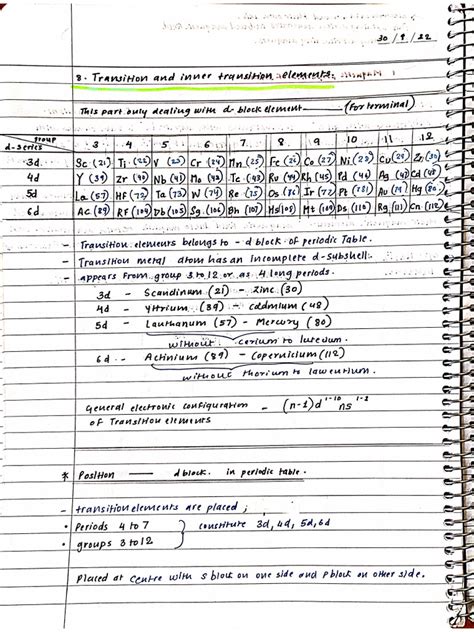 30/9/22
8. Transition and inner transition elements.
This part only dealing with d-block element —— (For terminal)
group 3 4 5 6 7 8 9 10 11 12
d-series
3d Sc (21) Ti (22) V (23) Cr (24) Mn (25) Fe (26) Co (27) Ni (28) Cu (29) Zn (30)
4d Y (39) Zr (40) Nb (41) Mo (42) Tc (43) Ru (44) Rh (45) Pd (46) Ag (47) Cd (48)
5d La (57) HF (72) Ta (73) W (74) Re (75) Os (76) Ir (77) Pt (78) Au (79) Hg (80)
6d Ac (89) Rf (104) Db (105) Sg (106) Bh (107) Hs (108) Mt (109) Ds (110) Rg (111) Cn (112)
- Transition elements belongs to - d block of periodic Table.
- Transition metal atom has an incomplete d-subshell.
- appears from group 3 to 12 or as 4 long periods.
3d – Scandinum (21) – Zinc (30)
4d – Yttrium (39) – cadmium (48)
5d – Lauthanum (57) – Mercury (80)
without cerium to lutetum.
6d – Actinium (89) – copernicium (112)
without thorium to lawentium.
General electronic configuration – (n-1)d¹⁻¹⁰ ns¹⁻²
of Transition elements
* Position —— d block. in periodic table.
- transition elements are placed ;
• Periods 4 to 7 } constitute 3d, 4d, 5d, 6d
• groups 3 to 12
Placed at centre with s block on one side and p block on other side.